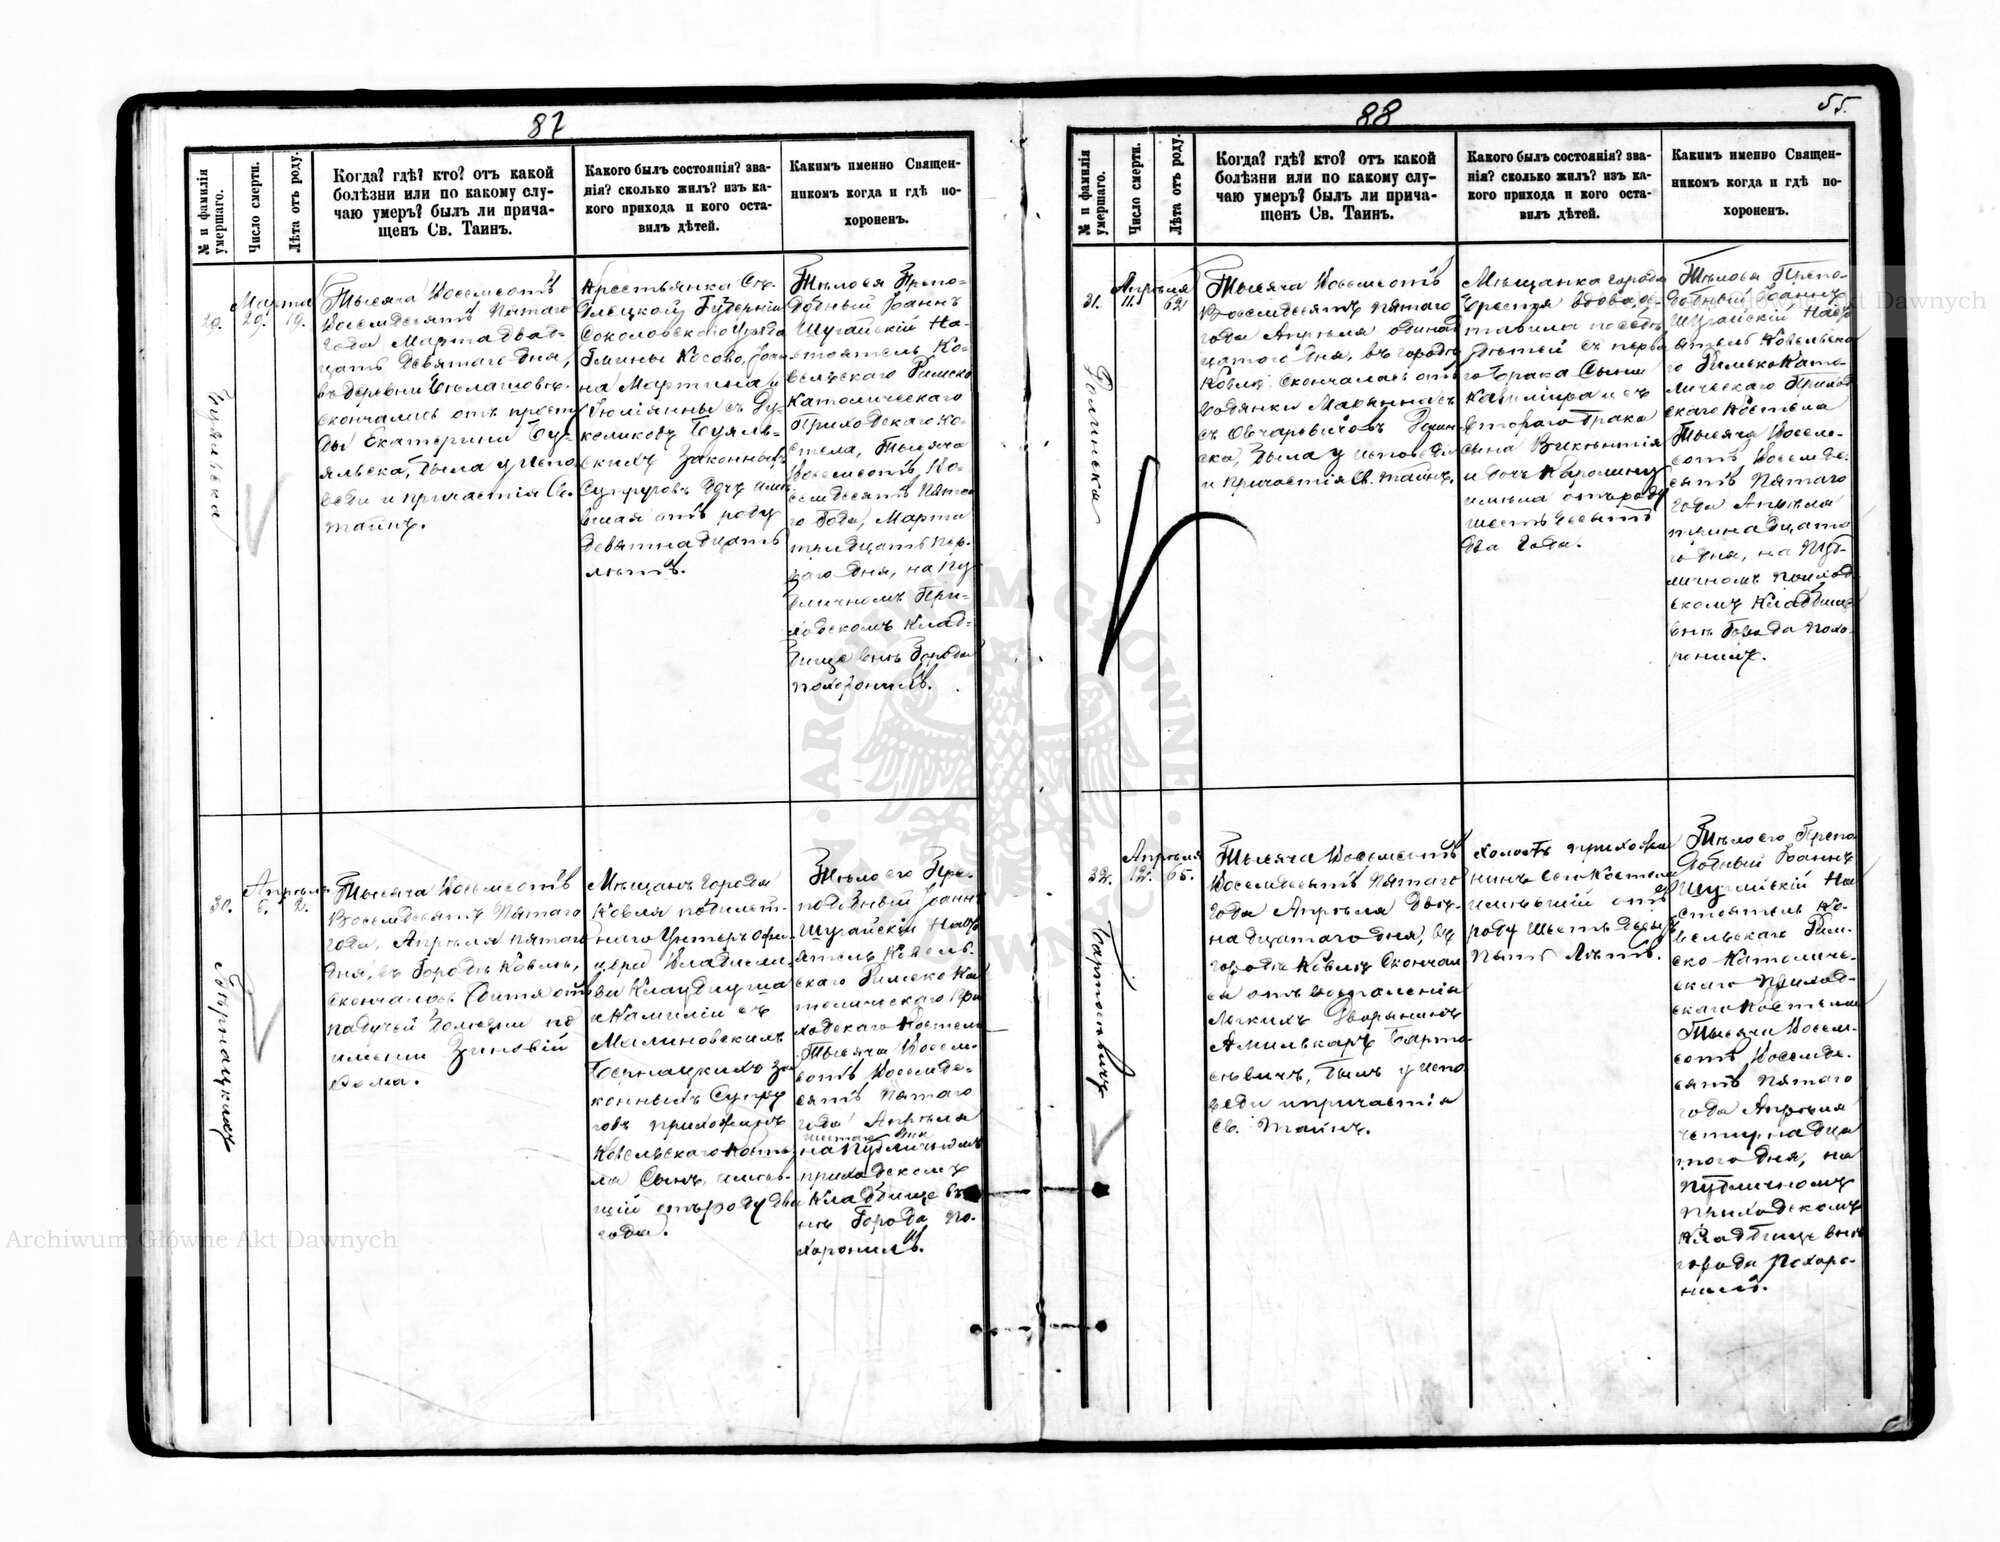 87
№ и фамилія умершаго.
Число смерти.
Лѣта отъ роду.
Когда? гдѣ? кто? отъ какой
болѣзни или по какому слу-
чаю умеръ? былъ ли прича-
щенъ Св. Таинъ.
Какого былъ состоянія? зва-
нія? сколько жилъ? изъ ка-
кого прихода и кого оста-
вилъ дѣтей.
Какимъ именно Священ-
никомъ когда и гдѣ по-
хороненъ.
29.
Марта
29.
19.
Тысяча Восемсотъ
Восемдесятъ Пятаго
года Марта двад-
цать девятаго дня,
въ деревни
скончались отъ просту
ды Екатерина Бу-
яльска, была у испо
веди и причастія Св.
тайнъ.
Крестьянка Сѣ-
длецкой Губерніи
Соколовского Уѣзда
Гмины Косово,
на Мартина и
Юліянны съ
Буяль-
скихъ Законныхъ
Супруговъ Дочь имѣ
вшая отъ роду
девятнадцать
лѣтъ.
Тѣло ея Препо-
добный Іоаннъ
Шугайскій На-
стоятель Ко-
вельскаго Римско
Католическаго
Приходскаго Ко-
стела, Тысяча
Восемсотъ Во-
семдесятъ Пята
го Года, Марта
тридцать пер-
ваго дня, на Пу
бличномъ При-
ходскомъ Клад-
бище внѣ Города
похоронилъ.
Буяльска
30.
Апрѣля
5.
2.
Тысяча Восемсотъ
Восемдесятъ Пятаго
года, Апрѣля пятаго
дня, въ Городѣ Ковлѣ,
скончалось Дитя отъ
падучей болезни по
имени Зиновій
Фома.
Мѣщанъ города
Ковля по билет-
наго Унтеръ Офи-
цера Владисла-
ва Клаудиуша
и Камиліи съ
Малиновскихъ
Бернацкихъ за
конныхъ Супру
говъ прихожанъ
Ковельскаго Косте
ла Сынъ, имѣв-
шій отъ роду два
года.
Тѣло его Пре-
подобный Іоаннъ
Шугайскій Наст
оятель Ковель-
скаго Римско Ка
толическаго При
ходскаго Костела
Тысяча Восем-
сотъ Восемде-
сятъ Пятаго
года Апрѣля
шестаго дня
на Публичномъ
приходскомъ
Кладбище в
нѣ Города по-
хоронилъ.
Бернацкихъ
88
55.
№ и фамилія умершаго.
Число смерти.
Лѣта отъ роду.
Когда? гдѣ? кто? отъ какой
болѣзни или по какому слу-
чаю умеръ? былъ ли прича-
щенъ Св. Таинъ.
Какого былъ состоянія? зва-
нія? сколько жилъ? изъ ка-
кого прихода и кого оста-
вилъ дѣтей.
Какимъ именно Священ-
никомъ когда и гдѣ по-
хороненъ.
31.
Апрѣля
11.
62
Тысяча Восемсотъ
Восемдесятъ пятаго
года Апрѣля одинад
цатого дня, въ городѣ
Ковлѣ скончалась отъ
водянки Марьянна съ
съ Овчаровичовъ
ска, была у исповѣди
и Причастія Св. Тайнъ.
Мѣщанка города
вдова, ос
тавила по себѣ
дѣтей съ перва
го брака Сына
Казиміра и съ
втораго брака
сына Викентія
и дочь Каролину
имѣла отъ роду
шестьдесятъ
два года.
Тѣло ея Препо-
добный Іоаннъ
Шугайскій Наст
оятель Ковельска
го Римско Като-
лическаго Приход
скаго Костела
Тысяча Восем-
сотъ Восемде-
сятъ Пятаго
года Апрѣля
тринадцата
го дня, на Пуб-
личномъ приход-
скомъ Кладбище
внѣ Города похо-
ронилъ.
32.
Апрѣля
12.
65.
Тысяча Восемсотъ
Восемдесятъ Пятаго
года Апрѣля Двѣ-
надцатаго дня, въ
городѣ Ковлѣ Скончал
ся отъ воспаленія
легкихъ Дворянинъ
Амилькаръ Барто-
шевичъ, былъ у испо
веди и причастія
Св. Тайнъ.
холостъ прихожа
нинъ сего Костела
имѣвшій отъ
роду шестьдесятъ
пять лѣтъ.
Тѣло его Препо
добный Іоаннъ
Шугайскій На
стоятель Ко-
вельскаго Рим-
ско Католиче-
скаго Приход-
скаго Костела
Тысяча Восем-
сотъ Восемде-
сятъ Пятаго
года Апрѣля
четырнадца
того дня, на
публичному
приходскомъ
Кладбище внѣ
города похоро-
нилъ.
Бартошевичъ
Archiwum Główne Akt Dawnych